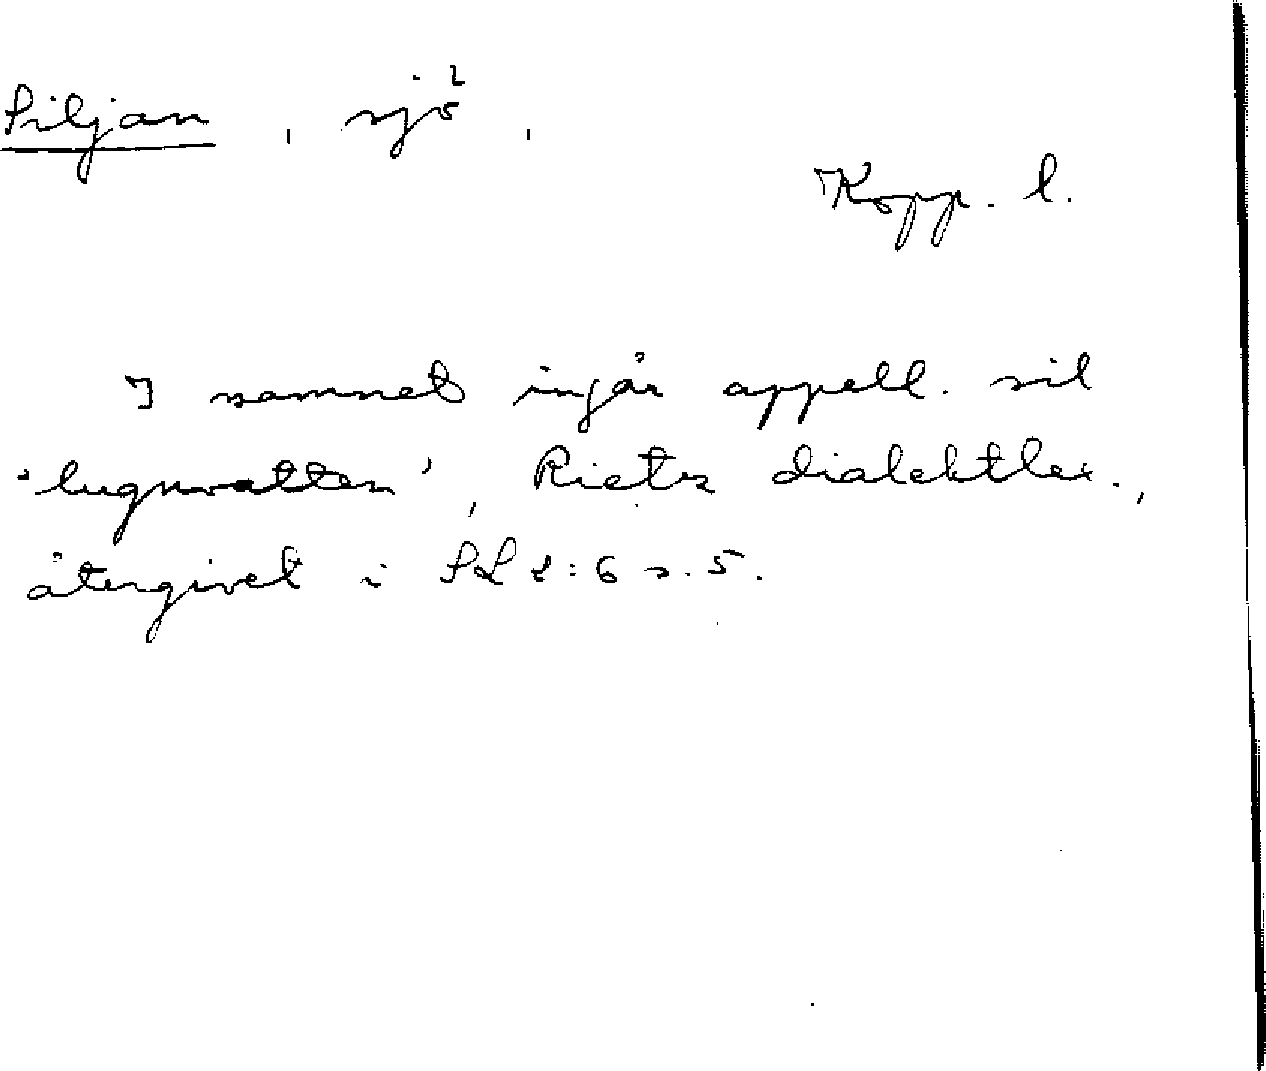 Siljan, sjö,
Kopp. l.
I namnet ingår appell. sil
'lugnvatten', Rietz dialektlex.,
återgivet i SL 2:6 s. 5.